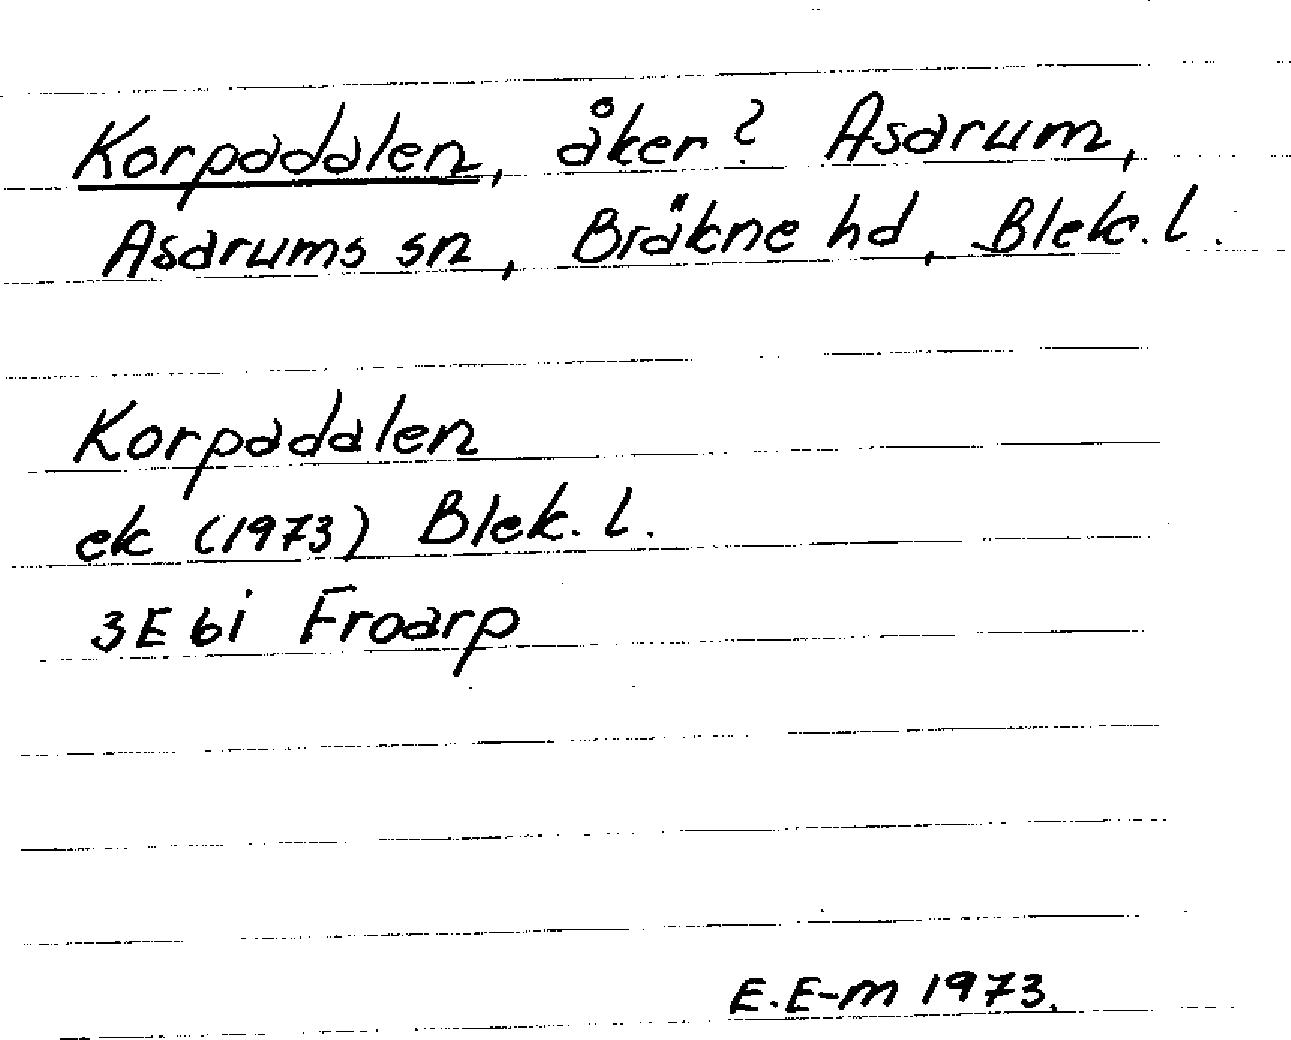 Korpadalen, åker? Asarum,
Asarums sn, Bräkne hd, Blek. l.
Korpadalen
ek (1973) Blek. l.
3E 6i Froarp
E.E-m 1973.